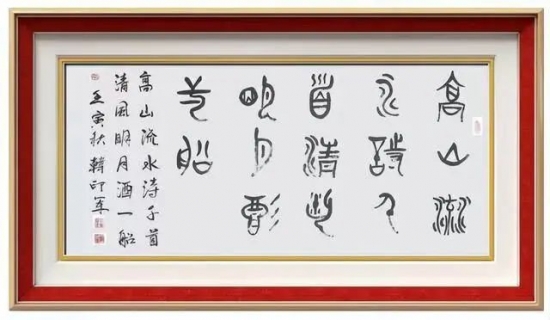 高山流
水詩千
首清風
明月酒
一船
高山流水诗千首
清風明月酒一船
壬寅秋韓印军